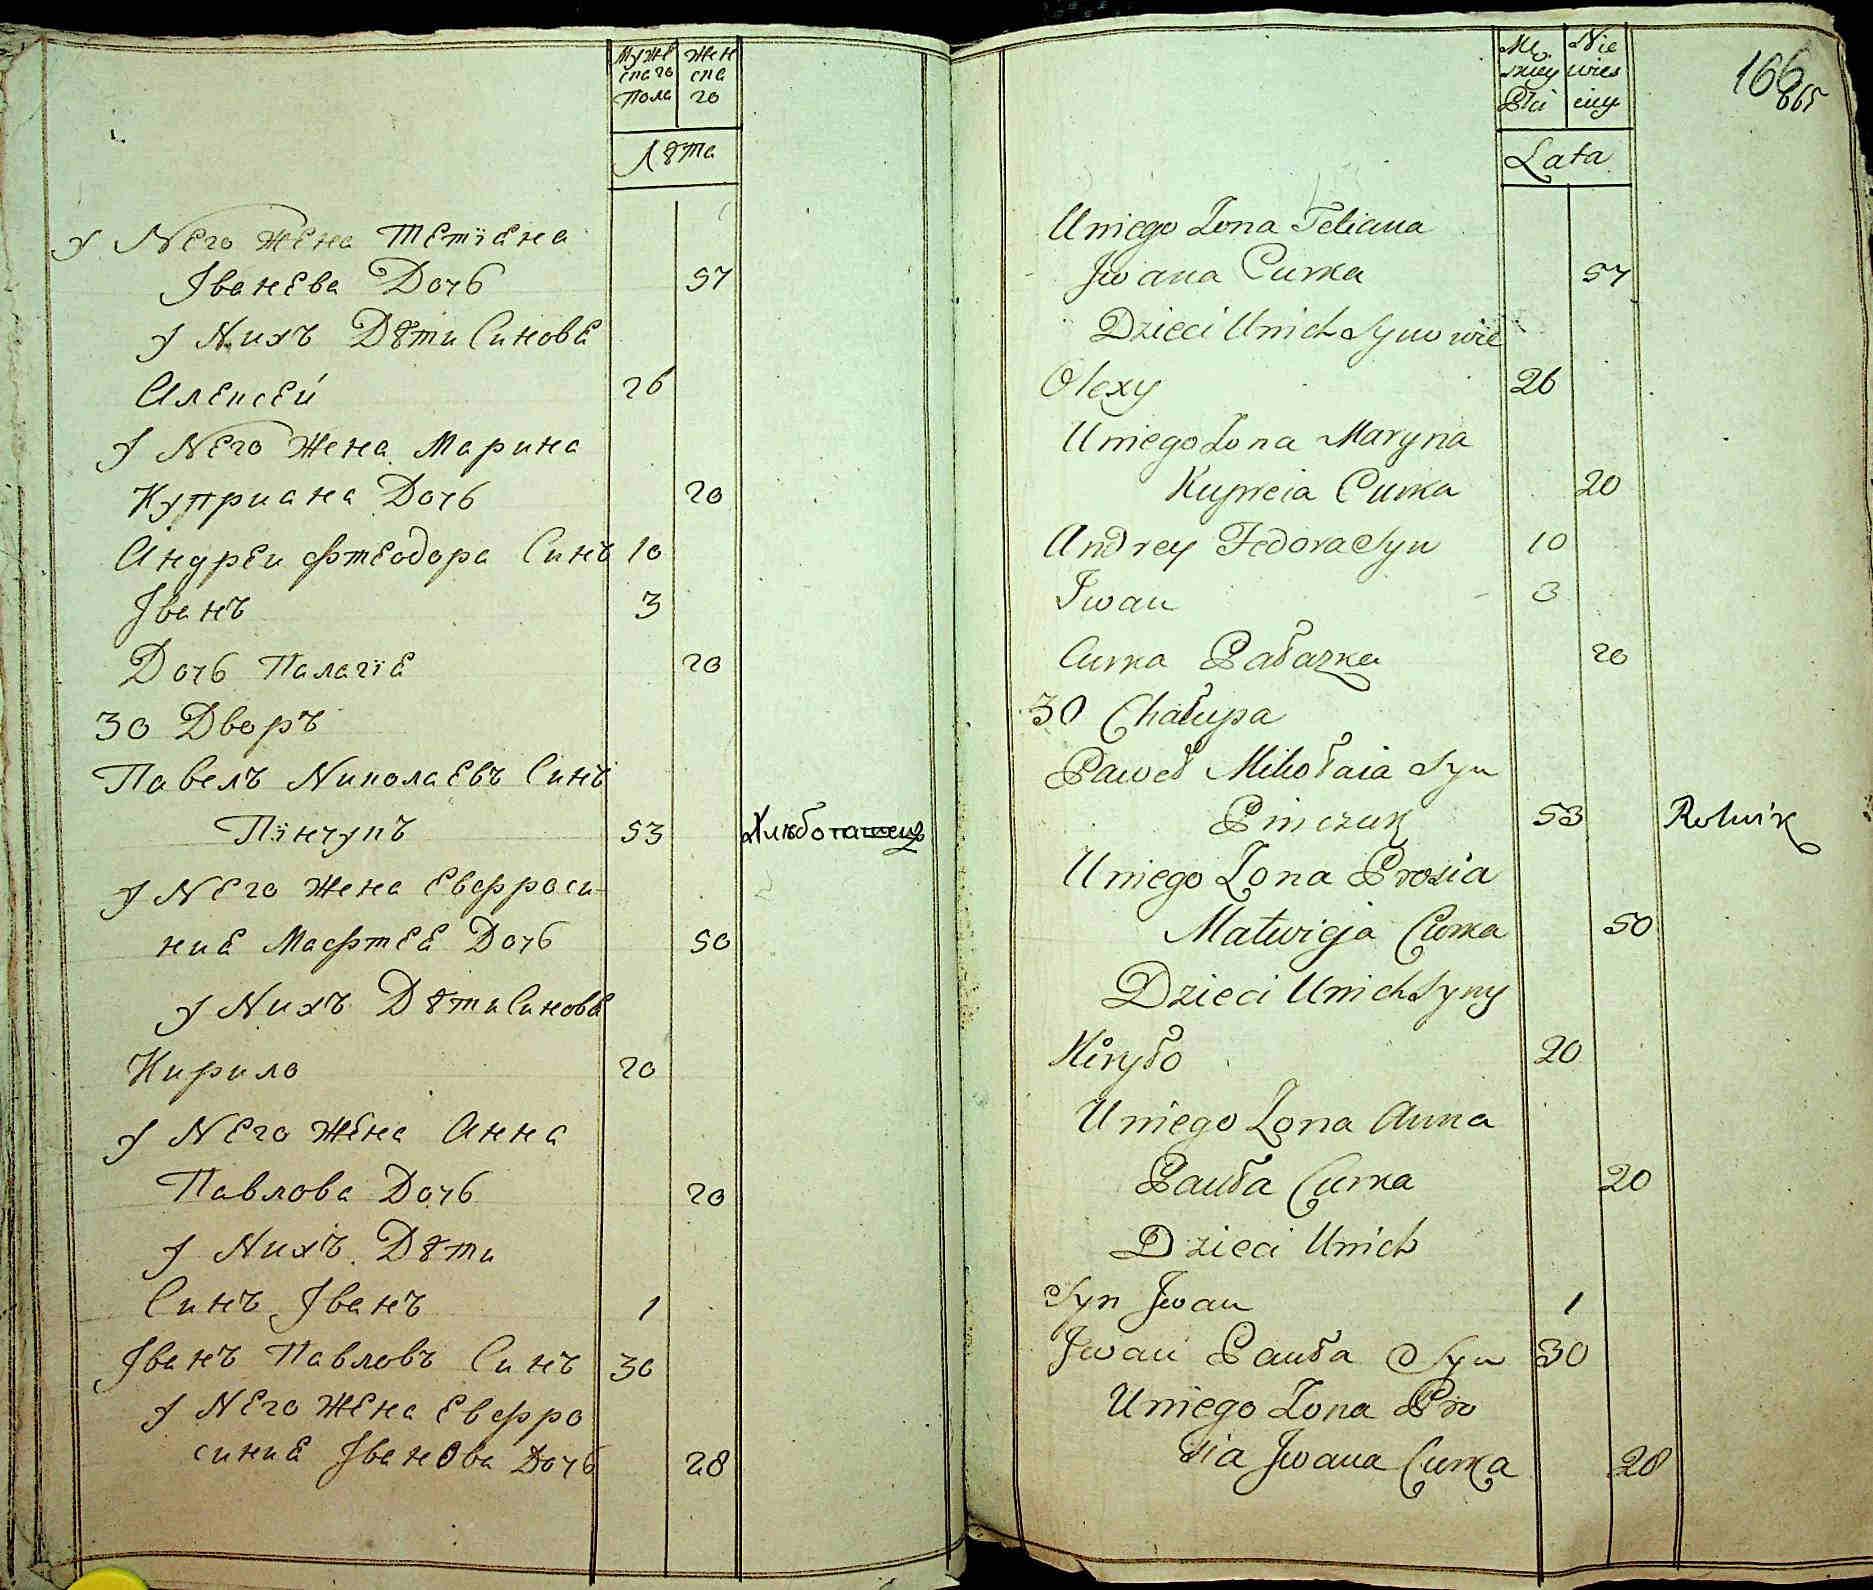 Муже
скаго
Пола
Жен
ска
го
Лѣта
У Него Жена Тетіана
Іванева Дочь 57
У Нихъ Дѣти Синове
Алексей 26
У Него Жена Марина
Куприана Дочь 20
Андреи Фтеодора Синъ 10
Іванъ 3
Дочь Палагіе 20
30 Дворъ
Павелъ Николаевъ Синъ
Пінчукъ 53 Хлѣбопашецъ
У Него Жена Евфроси-
ние Мафтее Дочь 50
У Нихъ Дѣти Синове
Кирило 20
У Него Жена Анна
Павлова Дочь 20
У Нихъ Дѣти
Синъ Іванъ 1
Іванъ Павловъ Синъ 30
У Него Жена Евфро
синие Іванова Дочь 28
Mę
skiey
Płci
Nie
wies
ciey
166
Lata
Uniego Żona Tetiana
Jwana Curka 57
Dzieci Unich Synowie
Olexy 26
Uniego Żona Maryna
Kupreia Curka 20
Andrey Fedora Syn 10
Iwan 3
Curka Pałazka 20
30 Chałupa
Paweł Mikołaia Syn
Pinczuk 53 Rolnik
Uniego Żona Prosia
Matwieja Curka 50
Dzieci Unich Syny
Kiryło 20
Uniego Żona Anna
Pauła Curka 20
Dzieci Unich
Syn Jwan 1
Jwan Pauła Syn 30
Uniego Żona Pro
sia Jwana Curka 28